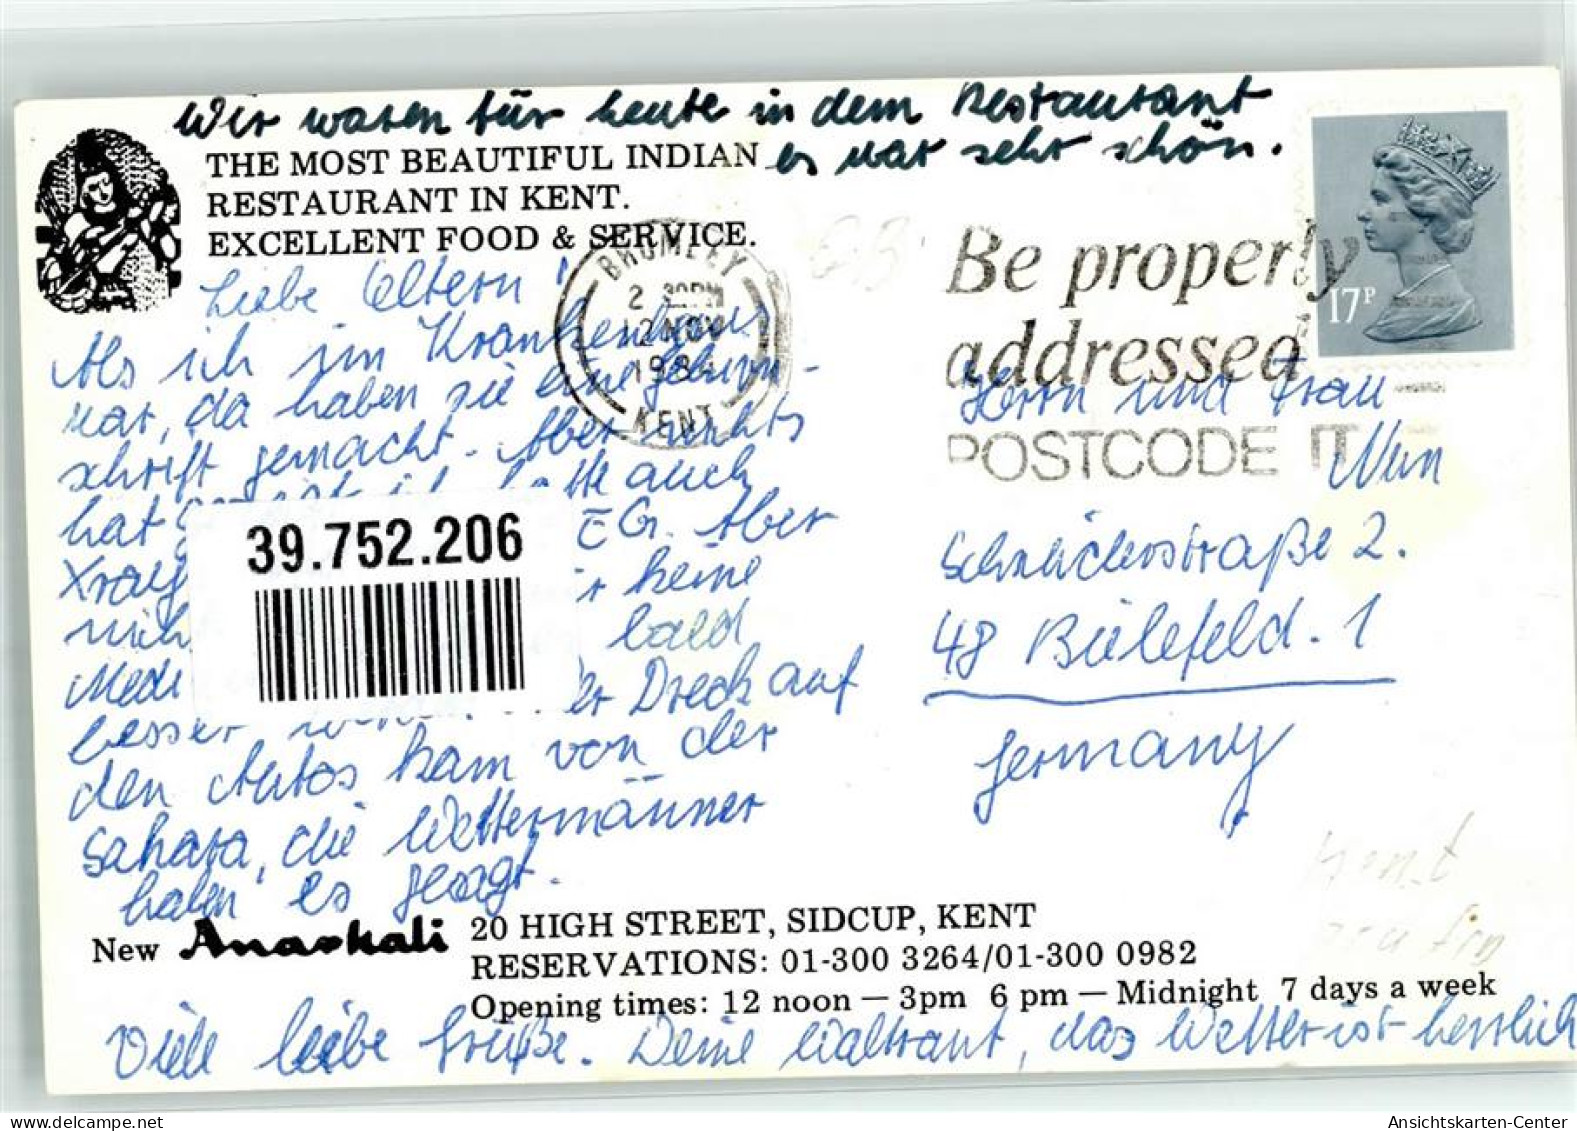 Wir waren für heute in dem Restaurant
es war sehr schön.
THE MOST BEAUTIFUL INDIAN
RESTAURANT IN KENT.
EXCELLENT FOOD & SERVICE.
BROMLEY
2 30PM
12 NOV
198
KENT
Be properly
addressed
POSTCODE IT
17P
Liebe Eltern!
Als ich im Krankenhaus
war, da haben sie eine
schrift gemacht. Aber nichts
hat ich hatte auch
Xray E G. Aber
keine
bald
besser er Dreck auf
den Autos kam von der
Sahara, die Wettermänner
haben es gesagt.
39.752.206
Herrn und Frau
Nun
2.
48 Bielefeld. 1
Germany
New Anarkali
20 HIGH STREET, SIDCUP, KENT
RESERVATIONS: 01-300 3264/01-300 0982
Opening times: 12 noon — 3pm 6 pm — Midnight 7 days a week
Viele liebe Grüße. Deine Waltraut, das Wetter ist herrlich
Kent
Ansichtskarten-Center